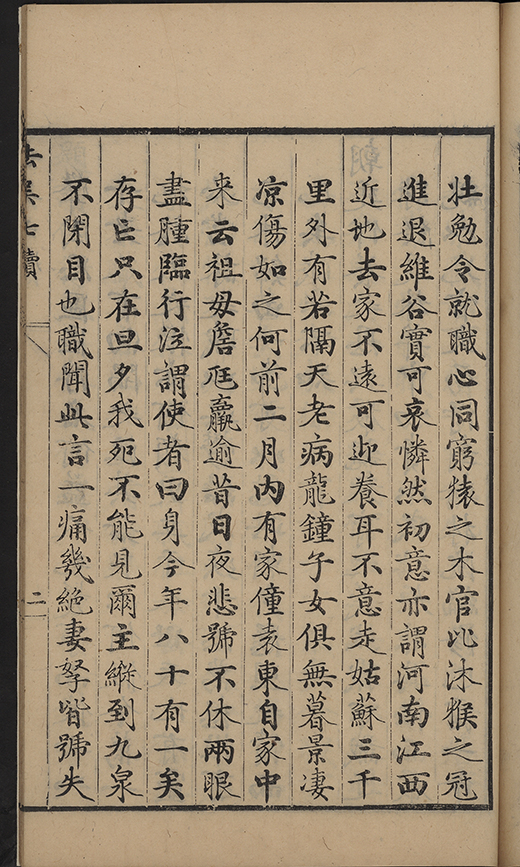 壯勉令就職心同窮猿之木官比沐猴之冠
進退維谷實可哀憐然初意亦謂河南江西
近地去家不遠可迎養耳不意走姑蘇三千
里外有若隔天老病龍鐘子女俱無暮景凄
凉傷如之何前二月内有家僮袁東自家中
来云祖母詹尫羸逾昔日夜悲號不休兩眼
盡腫臨行泣謂使者曰身今年八十有一矣
存亡只在旦夕我死不能見爾主縱到九泉
不閉目也職聞此言一痛幾絶妻孥皆號失
去吳七牘
二